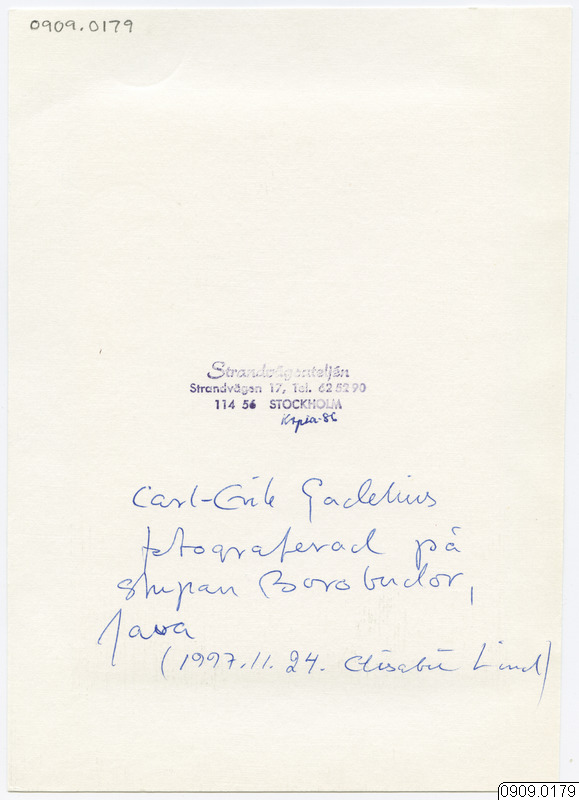 0909.0179
Strandvägsateljén
Strandvägen 17, Tel. 62 52 90
114 56 STOCKHOLM
Kopia-86
Carl-Erik Gadelius
fotograferad på
stupan Borobudor,
Java
(1997.11.24. Elisabet Lind)
0909.0179